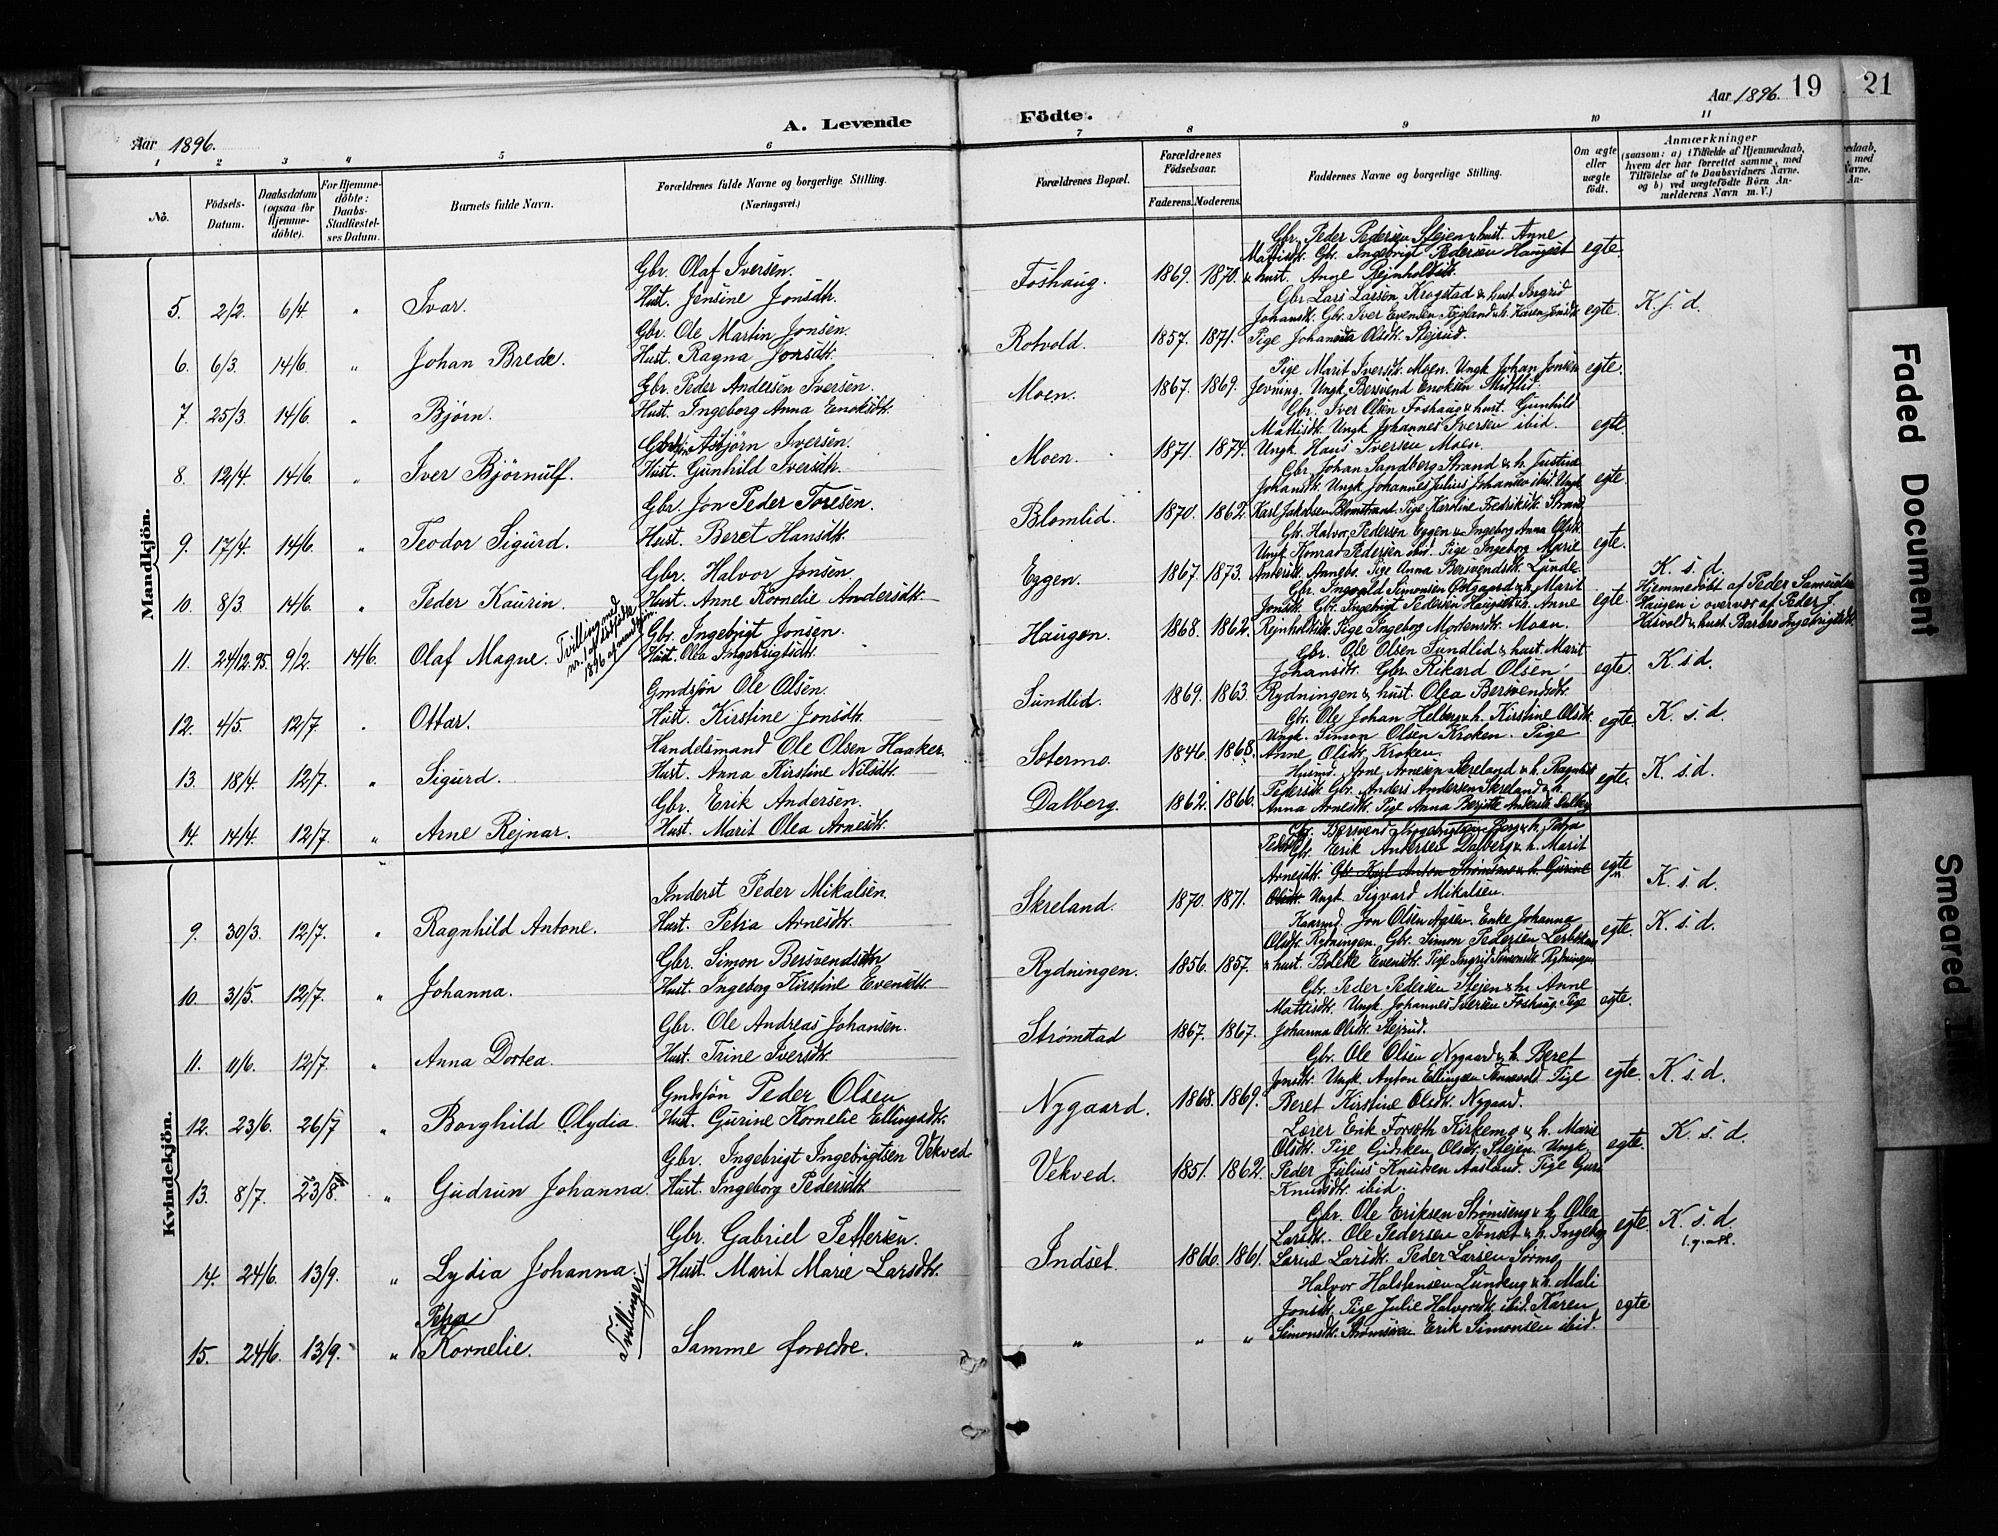 Aar 1896.
A. Levende
Födte.
Aar 1896. 19
21
1 2 3 4 5 6 7 8 9 10 11
No.
Födsels-Datum.
Daabsdatum (ogsaa for Hjemme-döbte).
For Hjemme-döbte: Daabs-Stadfæstel-ses Datum.
Barnets fulde Navn.
Forældrenes fulde Navne og borgerlige Stilling.
(Næringsvei.)
Forældrenes Bopæl.
Forældrenes Födselsaar.
Faderens. Moderens.
Faddernes Navne og borgerlige Stilling.
Om ægte eller uægte födt.
Anmærkninger
(saasom: a) i Tilfælde af Hjemmedaab, hvem der har forrettet samme, med Tilföielse af to Daabsvidners Navne. og b) ved uægtefödte Börn An-melderens Navn m. V.)
Mandkjön.
5. 2/2. 6/4. " Ivar.
Gbr. Olaf Iversen.
Hust. Jensine Jonsdtr.
Foshaug. 1869. 1870.
Gbr. Peder Pedersen Stejen & hust. Anne
Mattisdtr. Gbr. Ingebrigt Pedersen Haugset
& hust. Anne Rejnholdtsdtr.
egte.
6. 6/3. 14/6. " Johan Brede.
Gbr. Ole Martin Jonsen.
Hust. Ragna Jonsdtr.
Rotvold. 1857. 1871.
Gbr. Lars Larsen Krogstad & hust. Ingrid
Johansdtr. Gbr. Iver Evensen Tygland & h. Karen Jonsdtr
Pige Johanna Olsdtr. Stejrud.
egte. K. s. d.
7. 25/3. 14/6. " Bjørn.
Gbr. Peder Andersen Iversen.
Hust. Ingeborg Anna Enoksdtr.
Moen. 1867. 1869.
Pige Marit Iversdtr. Moen. Ungk. Johan Jonsen
Jevning. Ungk. Bersvend Enoksen Midtlid.
egte.
8. 12/4. 14/6. " Iver Bjørnulf.
Asbjørn Iversen.
Hust. Gunhild Iversdtr.
Moen. 1871. 1874.
Gbr. Iver Olsen Foshaug & hust. Gunhild
Mattisdtr. Ungk. Johannes Iversen ibid.
Ungk. Hans Iversen Moen.
egte.
9. 17/4. 14/6. " Teodor Sigurd.
Gbr. Jon Peder Toresen.
Hust. Beret Hansdtr.
Blomlid. 1870. 1862.
Gbr. Johan Sandberg Strand & h. Justina
Johansdtr. Ungk. Johannes Julius Johansen ibid. Ungk.
Karl Jakobsen Blomstrand. Pige Karoline Fredriksdtr. Strand.
egte.
10. 8/3. 14/6. " Peder Kaurin.
Gbr. Halvor Jonsen.
Hust. Anne Kornelie Andersdtr.
Eggen. 1867. 1873.
Gbr. Halvor Pedersen Eggen & Ingeborg Anna Olsdtr.
Ungk. Konrad Pedersen ibid. Pige Ingeborg Marie
Andersdtr. Annebo. Pige Anna Bersvendsdtr. Lynde.
egte.
11. 24/12.95. 9/2. 14/6. Olaf Magne.
Tvilling med nr. 1 af dødfødte 1896 af mandkjøn.
Gbr. Ingebrigt Jonsen.
Hust. Olea Ingebrigtsdtr.
Haugen. 1868. 1862.
Gbr. Ingvald Simonsen Østgaard & h. Marit
Jonsdtr. Gbr. Ingebrigt Pedersen Haugset & h. Anne
Rejnholdtsdtr. Pige Ingeborg Mortensdtr. Moan.
egte.
K. s. d.
Hjemmedøbt af Peder Samuelsen
Haugen i overvær af Peder J.
Hasvold & hust. Barbro Ingebrigtsdtr.
12. 4/5. 12/7. " Ottar.
Gmdsøn Ole Olsen.
Hust. Kirstine Jonsdtr.
Sundlid. 1869. 1863.
Gbr. Ole Olsen Sundlid & hust. Marit
Johansdtr. Gbr. Rikard Olsen
Rydningen & hust. Olea Bersvendsdtr.
egte. K. s. d.
13. 18/4. 12/7. " Sigurd.
Handelsmand Ole Olsen Haaker.
Hust. Anna Kirstine Nilsdtr.
Sætermo. 1846. 1868.
Gbr. Ole Johan Helberg & h. Kirstine Olsdtr.
Ungk. Simon Olsen Kroken. Pige
Anne Olsdtr. Kroken.
egte. K. s. d.
14. 14/4. 12/7. " Arne Rejnar.
Gbr. Erik Andersen.
Hust. Marit Olea Arnesdtr.
Dalberg. 1862. 1866.
Husmd. Arne Arnesen Skreland & h. Ragnhild
Pedersdtr. Gbr. Anders Andersen Skreland & h.
Anna Arnesdtr. Pige Anna Berjitte Andersdtr. Dalberg
egte. K. s. d.
Kvindekjön.
9. 30/3. 12/7. " Ragnhild Antone.
Inderst Peder Mikalsen.
Hust. Petra Arnesdtr.
Skreland. 1870. 1871.
Gbr. Bersvend Ingebrigtsen Berg & h. Petra
Gbr. Erik Andersen Dalberg & h. Marit
Arnesdtr. Gbr. Karl Anton Strømmo & h. Gurine
Olsdtr. Ungk. Sigvard Mikalsen.
egte. K. s. d.
10. 31/5. 12/7. " Johanna.
Gbr. Simon Bersvendsen
Hust. Ingeborg Kirstine Evensdtr.
Rydningen. 1856. 1857.
Kaarmd. Jon Olsen Aasen. Enke Johanna
Olsdtr. Rydningen. Gbr. Simon Pedersen
& hust. Bolette Evensdtr. Pige Ingrid Simonsdtr. Rydningen
egte. K. s. d.
11. 11/6. 12/7. " Anna Dortea.
Gbr. Ole Andreas Johansen.
Hust. Trine Iversdtr.
Strømstad 1867. 1867.
Gbr. Peder Pedersen Stejen & h. Anne
Mattisdtr. Ungk. Johannes Iversen Foshaug. Pige
Johanna Olsdtr. Stejrud.
egte.
12. 23/6. 26/7 " Borghild Olydia.
Gmdsøn Peder Olsen
Hust. Gurine Kornelie Ellingsdtr.
Nygaard. 1868. 1869.
Gbr. Ole Olsen Nygaard & h. Beret
Jonsdtr. Ungk. Anton Ellingsen Pige
Beret Kirstine Olsdtr. Nygaard.
egte. K. s. d.
13. 8/7. 23/8. " Gudrun Johanna.
Gbr. Ingebrigt Ingebrigtsen Vekved.
Hust. Ingeborg Pedersdtr.
Vekved. 1851. 1862.
Lærer Erik Forseth Kirkemo & h. Marie
Olsdtr. Pige Gidsken Olsdtr. Stejen. Ungk.
Peder Julius Knudsen Aasland. Pige Guri
Knudsdtr. ibid.
egte. K. s. d.
14. 24/6. 13/9. " Lydia Johanna.
Tvillinger
Gbr. Gabriel Pettersen.
Hust. Marit Marie Larsdtr.
Indset. 1866. 1861.
Gbr. Ole Eriksen Strømseng & h. Olea
Larsdtr. Ole Pedersen Tønset & h. Ingeborg
Larine Larsdtr. Peder Larsen Sørmo.
egte K. s. d.
15. 24/6. 13/9. " Petra Kornelie.
Samme foreldre.
" " "
Halvor Halstensen Lundeng & h. Mali
Jonsdtr. Pige Julie Halvorsdtr. ibid. Karen
Simonsdtr. Strømsøren. Erik Simonsen ibid.
egte
Faded Document
Smeared